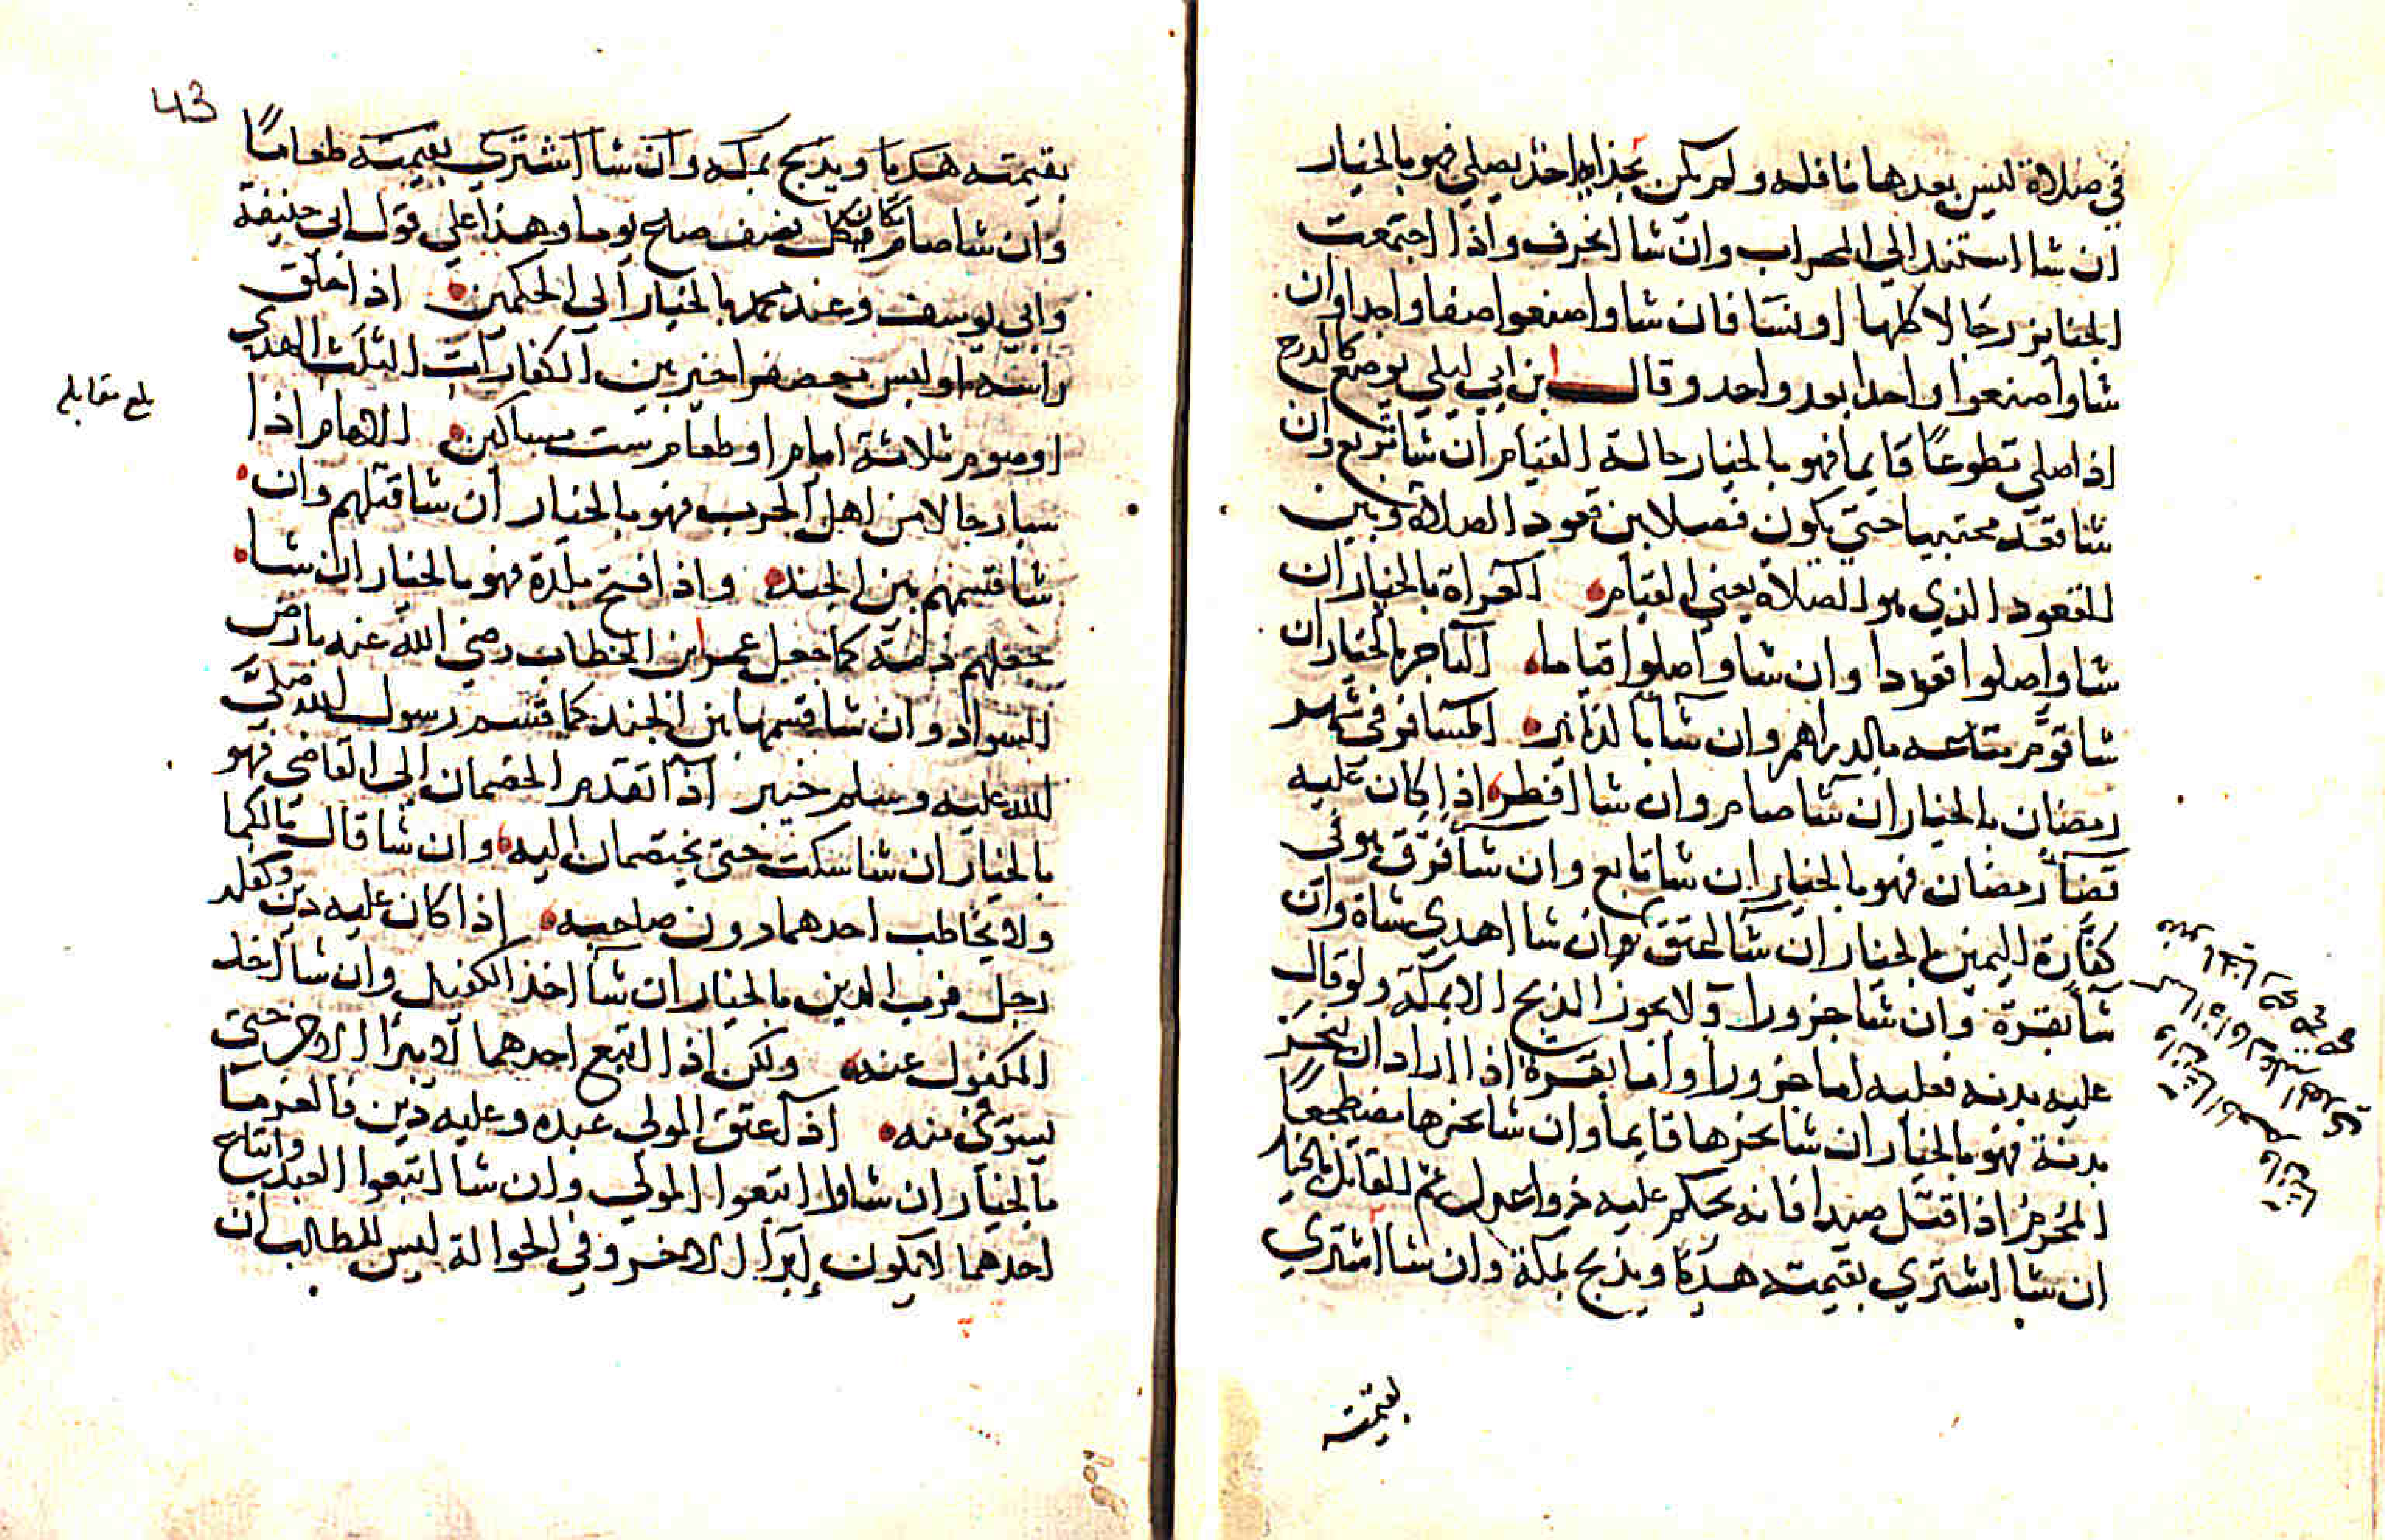 في صلاة ليس بعدها نافلة ولم يكن بحذايه احد يصلي فهو بالخيار
ان شا استند الي المحراب وان شا انحرف واذا اجتمعت
الجنايز رجالا كلها او نسا فان شاوا صفوا صفا واحدا وان
شاوا صفوا واحدا بعد واحد وقال ابن ابي ليلي يوضع كالدرج
اذا صلي تطوعا قايما فهو بالخيار حالة القيام ان شا تربع وان
شا قعد محتبيا حتي يكون فصلا بين قعود الصلاة وبين
القعود الذي هو الصلاة يعني القيام العراة بالخيار ان
شاوا صلوا قعودا وان شاوا صلوا قياما التاجر بالخيار ان
شا قوم متاعه بالدراهم وان شا بالدنانير المسافر في شهر
رمضان بالخيار ان شا صام وان شا افطر اذا كان عليه
قضا رمضان فهو بالخيار ان شا تابع وان شا فرق هو في
كفارة اليمين بالخيار ان شا اعتق وان شا اهدي شاة وان
شا بقرة وان شا جزورا ولا يجوز الذبح الا بمكة ولو قال
عليه بدنة فعليه اما جزورا واما بقرة اذا اراد ان ينحر
بدنة فهو بالخيار ان شا نحرها قايما وان شا نحرها مضطجعا
المحرم اذا قتل صيدا فانه يحكم عليه ذوا عدل ثم للقاتل بالخيار
ان شا اشتري بقيمته هديا ويذبح بمكة وان شا اشتري
بقيمته
43
بقيمته هديا ويذبح بمكه وان شا اشتري بقيمته طعاما
وان شا صام مكان كل نصف صاع يوما وهذا علي قول ابي حنيفة
وابي يوسف وعند محمد بالخيار الي الحكمين اذا حلق
راسه او لبس بعصفر اخير بين الكفارات الثلث الهدي
او صوم ثلاثة ايام او طعام ست مساكين الامام اذا
سبا رجالا من اهل الحرب فهو بالخيار ان شا قتلهم وان
شا قسمهم بين الجند واذا افتح بلدة فهو بالخيار ان شا
جعلهم ذمة كما جعل عمر ابن الخطاب رضي الله عنه بارض
السواد وان شا قسمها بين الجند كما قسم رسول الله صلي
الله عليه وسلم خيبر اذا تقدم الخصمان الي القاضي فهو
بالخيار ان شا سكت حتي يختصمان اليه وان شا قال مالكما
ولا يخاطب احدهما دون صاحبه اذا كان عليه دين وكفله
رجل فرب الدين بالخيار ان شا اخذ الكفيل وان شا اخذ
المكفول عنه ولكن اذا اتبع احدهما لا يبرا الاخر حتي
يستوفي منه اذا اعتق المولي عبده وعليه دين فالغرما
بالخيار ان شاوا اتبعوا المولي وان شا اتبعوا العبد واتباع
احدهما لا يكون إبرا الاخر وفي الحوالة ليس للطالب ان
بلغ مقابلة